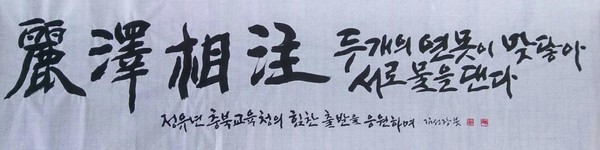 麗澤相注
두개의 연못이 맞닿아
서로 물을 댄다
정유년 충북교육청의 힘찬 출발을 응원하며